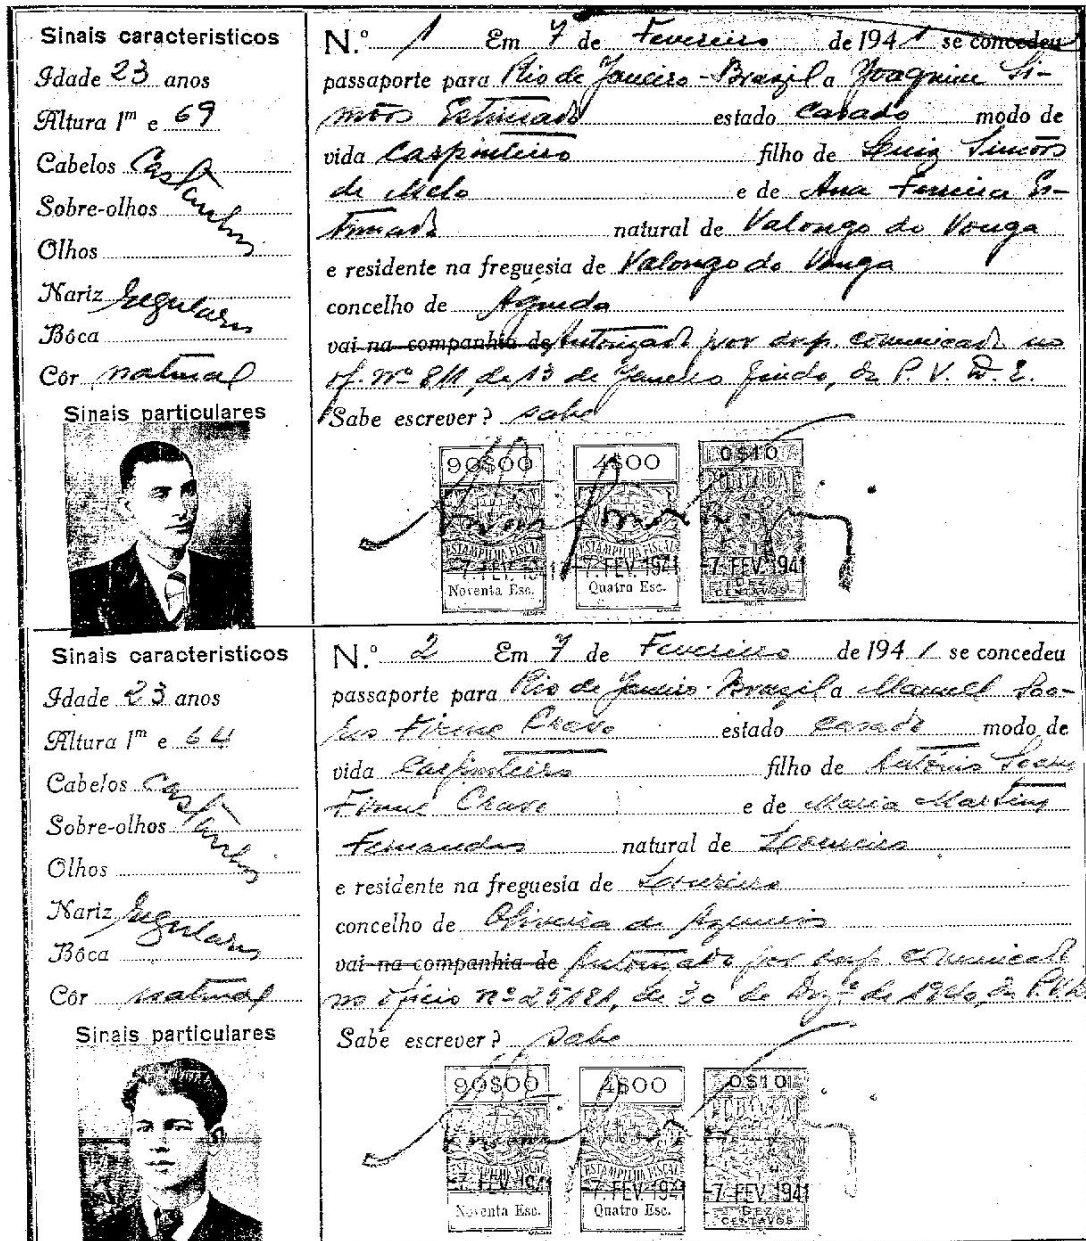 Sinais caracteristicos
Idade 23 anos
Altura 1m e 69
Cabelos Castanhos
Sobre-olhos
Olhos
Nariz regulares
Bôca
Côr natural
Sinais particulares
N.º 1 Em 7 de Fevereiro de 1941 se concedeu
passaporte para Rio de Janeiro - Brazil a Joaquim Si-
mões Estimado estado casado modo de
vida Carpinteiro filho de Luiz Simões
de Melo e de Ana Ferreira Es-
timado natural de Valongo do Vouga
e residente na freguesia de Valongo do Vouga
concelho de Águeda
vai na companhia de Autorizado por desp. comunicado no
of. nº 811, de 13 de Janeiro findo, da P. V. D. E.
Sabe escrever? sabe
90$00 4$00 0$10
ESTAMPILHA FISCAL ESTAMPILHA FISCAL
-7. FEV. 1941 -7. FEV. 1941 -7. FEV. 1941
Noventa Esc. Quatro Esc. DEZ CENTAVOS
Sinais caracteristicos
Idade 23 anos
Altura 1m e 64
Cabelos Castanhos
Sobre-olhos
Olhos
Nariz regulares
Bôca
Côr natural
Sinais particulares
N.º 2 Em 7 de Fevereiro de 1941 se concedeu
passaporte para Rio de Janeiro - Brazil a Manuel Soa-
res Firme Cravo estado casado modo de
vida Carpinteiro filho de António Soares
Firme Cravo e de Maria Martins
Fernandes natural de Loureiro
e residente na freguesia de Loureiro
concelho de Oliveira de Azemeis
vai na companhia de Autorizado por desp. comunicado
no ofício nº 25181, de 30 de Dezº de 1940, da P. V. D.
Sabe escrever? sabe
90$00 4$00 0$10
ESTAMPILHA FISCAL ESTAMPILHA FISCAL
-7. FEV. 1941 -7. FEV. 1941 -7. FEV. 1941
Noventa Esc. Quatro Esc. DEZ CENTAVOS